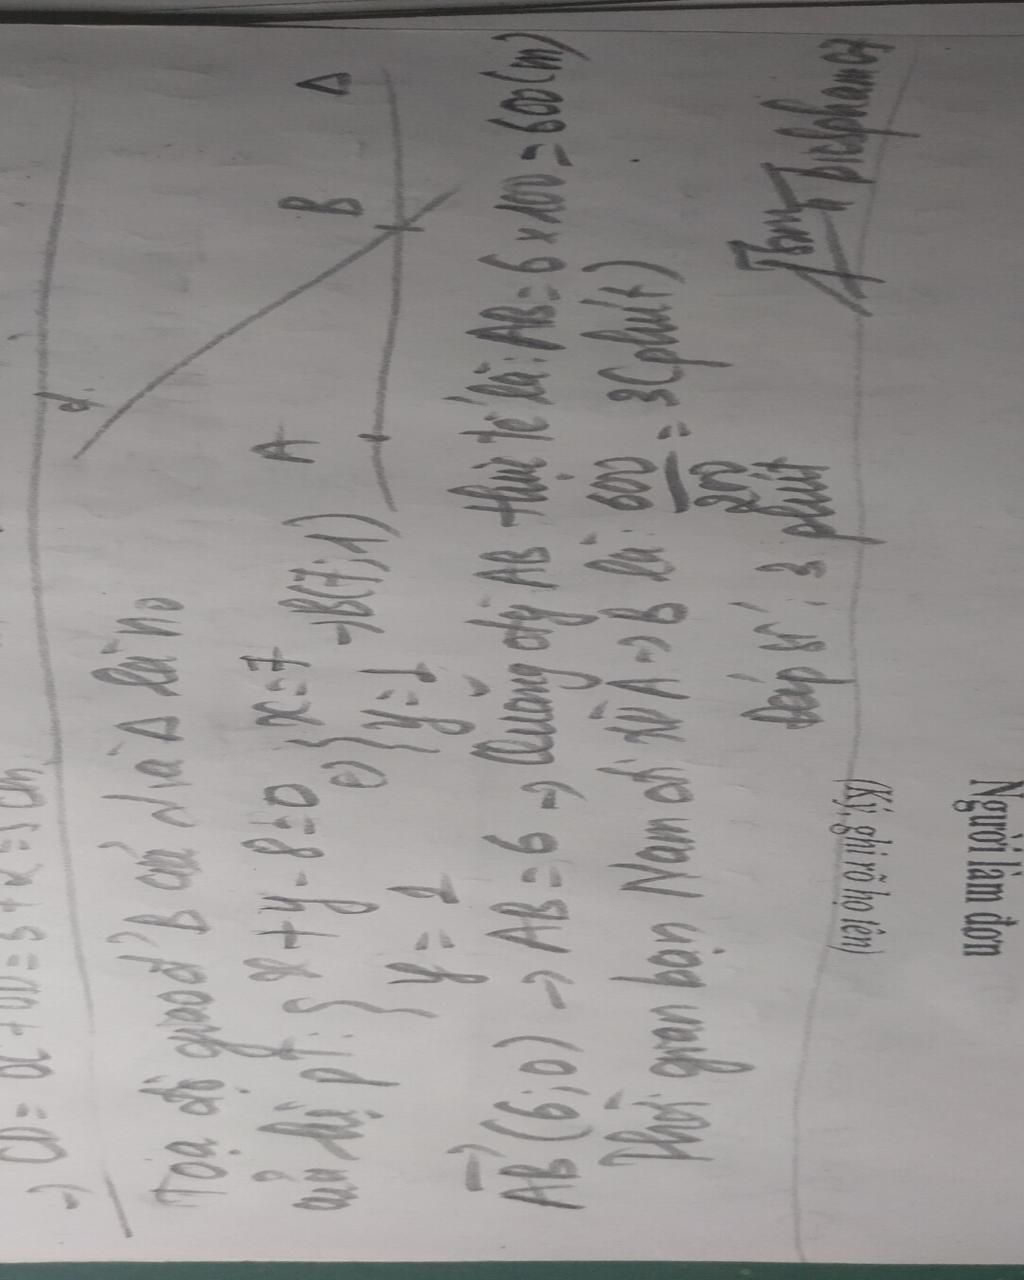 ⇒ CD = OC + OD = 3 + x = 5 cm
Tọa độ giaođ' B của d và Δ là no
của hệ pt: { x + y - 8 = 0
y = 1
⇔ { x = 7
y = 1
→ B(7; 1)
d
A
B
Δ
AB (6; 0) → AB = 6 → Quãng đg AB thực tế là: AB = 6 x 100 = 600 (m)
Thời gian bạn Nam đi từ A → B là: 600/200 = 3 (phút)
Đáp số: 3 phút
(Ký, ghi rõ họ tên)
Người làm đơn